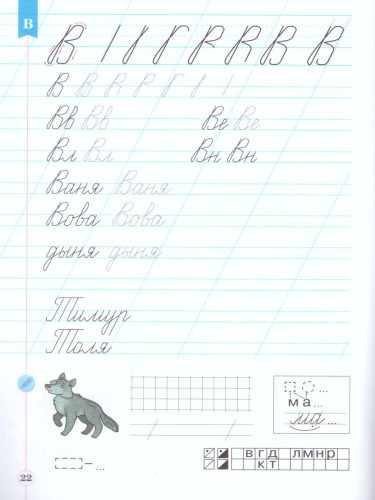 В
В В В
В В
Вв Вв Ве Ве
Вл Вл Вн Вн
Ваня Ваня
Вова Вова
дыня дыня
Тимур
Толя
ма...
ма...
–...
вгд лмнр
кт
22